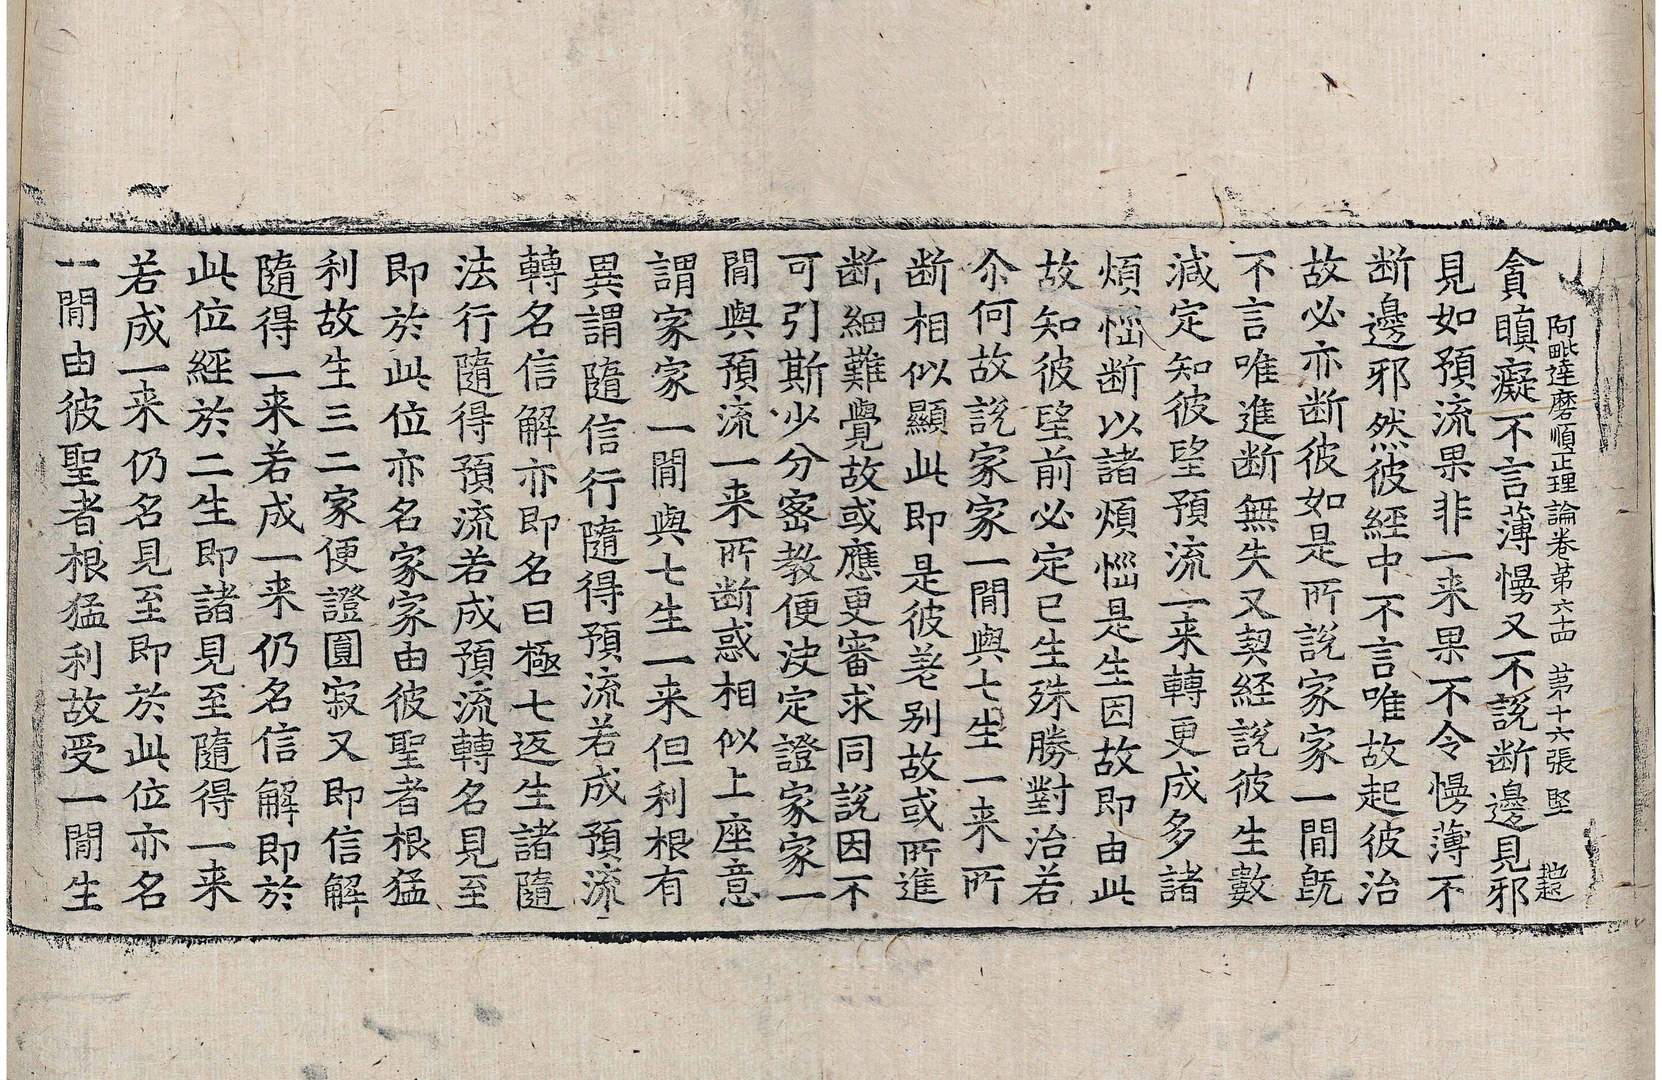 阿毗達磨順正理論卷第六十四 第十六張 堅
貪瞋癡不言薄慢又不說断邊見邪
見如預流果非一来果不令慢薄不
断邊邪然彼經中不言唯故起彼治
故必亦断彼如是所說家家一閒旣
不言唯進断無失又契經說彼生數
減定知彼望預流一来轉更成多諸
煩惱断以諸煩惱是生因故即由此
故知彼望前必定已生殊勝對治若
尒何故說家家一閒與七生一来所
断相似顯此即是彼差别故或所進
断細難覺故或應更審求同說因不
可引斯少分密教便決定證家家一
閒與預流一来所断惑相似上座意
謂家家一閒與七生一来但利根有
異謂隨信行隨得預流若成預流
轉名信解亦即名曰極七返生諸隨
法行隨得預流若成預流轉名見至
即於此位亦名家家由彼聖者根猛
利故生三二家便證圓寂又即信解
隨得一来若成一来仍名信解即於
此位經於二生即諸見至隨得一来
若成一来仍名見至即於此位亦名
一閒由彼聖者根猛利故受一閒生